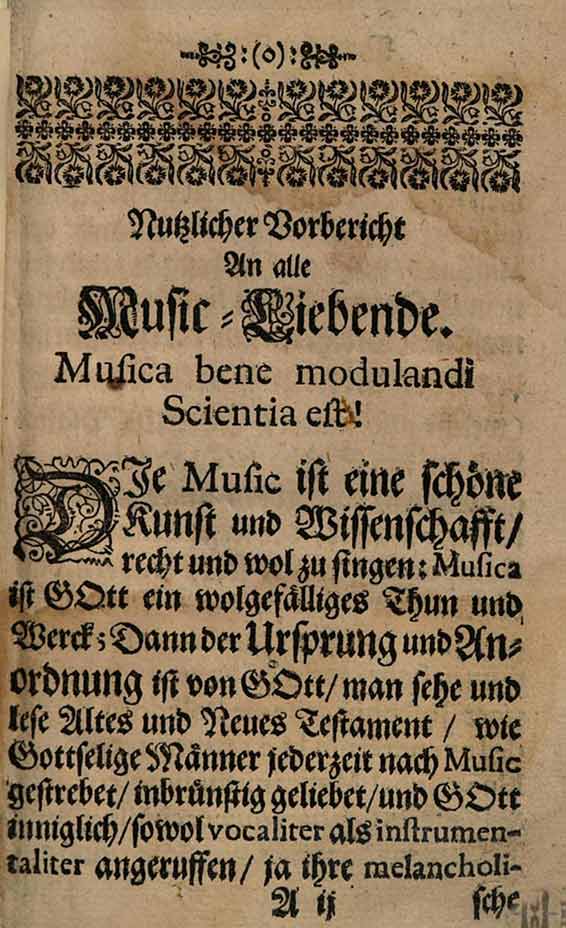 :(0):
Nutzlicher Vorbericht
An alle
Music-Liebende.
Musica bene modulandi
Scientia est!
DJe Music ist eine schöne
Kunst und Wissenschafft/
recht und wol zu singen: Musica
ist GOtt ein wolgefälliges Thun und
Werck; Dann der Ursprung und An-
ordnung ist von GOtt/ man sehe und
lese Altes und Neues Testament / wie
Gottselige Männer jederzeit nach Music
gestrebet/ inbrünstig geliebet/ und GOtt
inniglich/ sowol vocaliter als instrumen-
taliter angeruffen/ ja ihre melancholi-
A ij sche